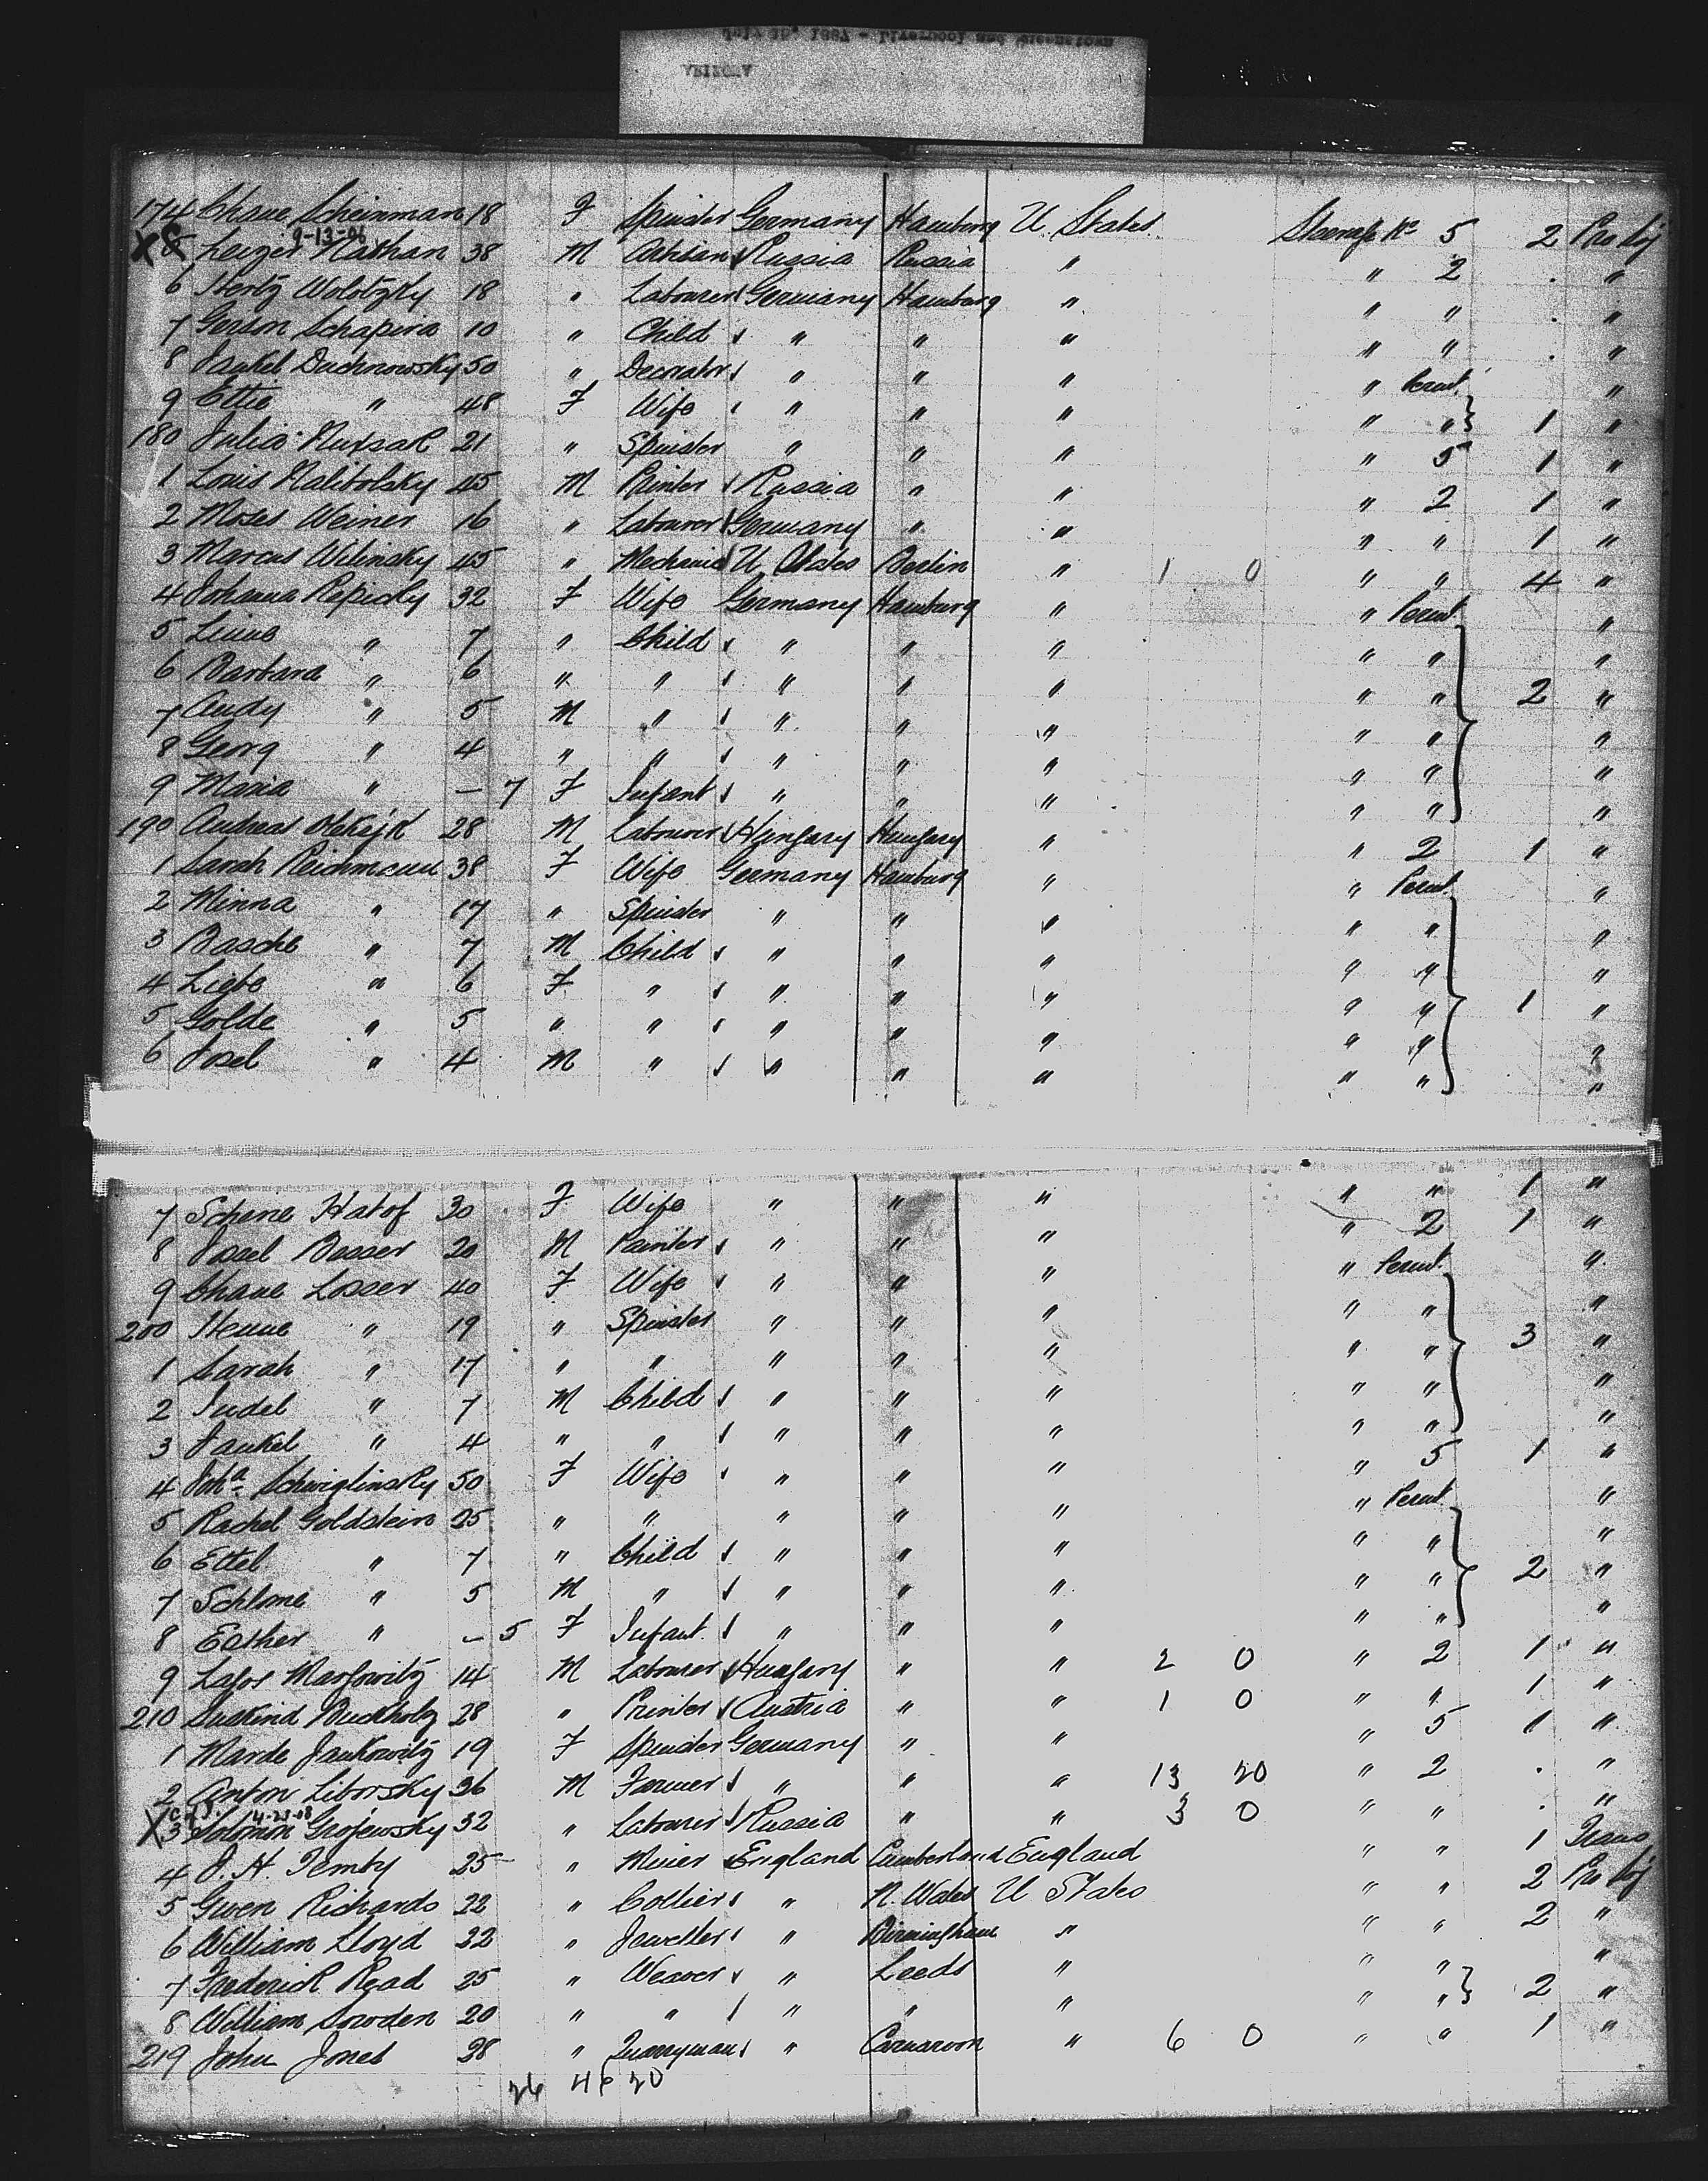 July 15, 1887 - Liverpool and Queenstown
ARIZONA
174 Chane Scheinman 18 F Spinster Germany Hamburg U. States Steerage No 5 2 Pro Sy
9-13-06
X 5 Leizer Nathan 38 M Artisan Russia Russia " " 2 . "
6 Hertz Wolotzky 18 " Labourer Germany Hamburg " " " . "
7 Gerson Schapira 10 " Child " " " " " . "
8 Jankel Duchnowsky 50 " Decorator " " " " Permt. "
9 Ettie " 48 F Wife " " " " " 1 "
180 Julia 21 " Spinster " " " " 5 1 "
1 Louis Malitolsky 45 M Painter Russia " " " 2 1 "
2 Moses Weiner 16 " Labourer Germany " " " " 1 "
3 Marcus Wilinsky 45 " Mechanic U States Berlin " 1 0 " " 4 "
4 Johanna Repicky 32 F Wife Germany Hamburg " " Permt. "
5 " 7 " Child " " " " " "
6 Barbara " 6 " " " " " " " 2 "
7 Andy " 5 M " " " " " " "
8 Georg " 4 " " " " " " " "
9 Maria " – 7 F Infant " " " " " "
190 Andreas 28 M Labourer Hungary Hungary " " 2 1 "
1 Sarah Reichmann 38 F Wife Germany Hamburg " " Permt. "
2 Minna " 17 " Spinster " " " " " "
3 Basche " 7 M Child " " " " " "
4 Liebe " 6 F " " " " " " 1 "
5 Golde " 5 " " " " " " " "
6 Josel " 4 M " " " " " " "
7 Schene Hatof 30 F Wife " " " " " 1 "
8 Josel Besser 20 M Painter " " " " 2 1 "
9 Chane Losser 40 F Wife " " " " Permt. "
200 Henne " 19 " Spinster " " " " " "
1 Sarah " 17 " " " " " " " 3 "
2 Judel " 7 M Child " " " " " "
3 Jankel " 4 " " " " " " " "
4 Joha Schwiglinsky 50 F Wife " " " " 5 1 "
5 Rachel Goldstein 25 " " " " " " Permt. "
6 Ettel " 7 " Child " " " " " "
7 Schlome " 5 M " " " " " " 2 "
8 Esther " – 5 F Infant " " " " " "
9 Lajos Markowitz 14 M Labourer Hungary " " 2 0 " 2 1 "
210 Suskind Buckholz 28 " Printer Austria " " 1 0 " " 1 "
1 Marde Jankowitz 19 F Spinster Germany " " " 5 1 "
2 Anton Liborsky 36 M Farmer " " " 13 20 " 2 . "
4-23-08
X 3 Solomon Grojewsky 32 " Labourer Russia " " 3 0 " " . "
4 J. H. Temby 25 " Miner England Cumberland England " " 1 Trans
5 Gwen Richards 22 " Collier " N. Wales U States " " 2 Pro Sy
6 William Lloyd 22 " Jeweller " Birmingham " " " 2 "
7 Frederick Read 25 " Weaver " Leeds " " " "
8 William Sowden 20 " " " " " " " 2 "
219 John Jones 28 " Quarryman " Carnarvon " 6 0 " " 1 "
26 46 20